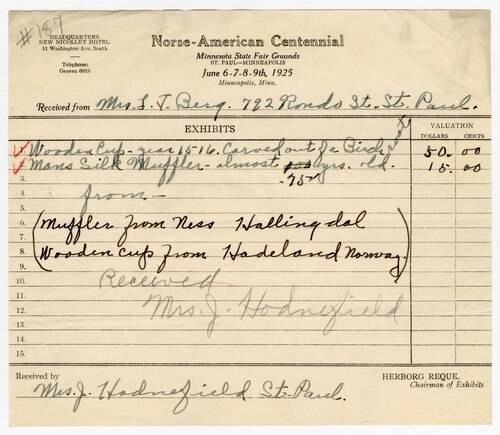 # 187
HEADQUARTERS
NEW NICOLLET HOTEL
11 Washington Ave. South
Telephone:
Geneva 6935
Norse-American Centennial
Minnesota State Fair Grounds
ST. PAUL—MINNEAPOLIS
June 6-7-8-9th, 1925
Minneapolis, Minn.
Received from Mrs. L. T. Berg. 792 Rondo St. St. Paul.
EXHIBITS
VALUATION
DOLLARS CENTS
Wooden Cup - year 1516. Carved out of a Birch root 50.00
Mans Silk Muffler - almost yrs. old. 15.00
3. -75
4. from -
5.
6. (Muffler from Ness Hallingdal
7.
8. Wooden cup from Hadeland Norway.)
9.
10. Received
11. Mrs. J. Hodnefield
12.
13.
14.
15.
Received by
HERBORG REQUE,
Chairman of Exhibits
Mrs. J. Hodnefield St. Paul.